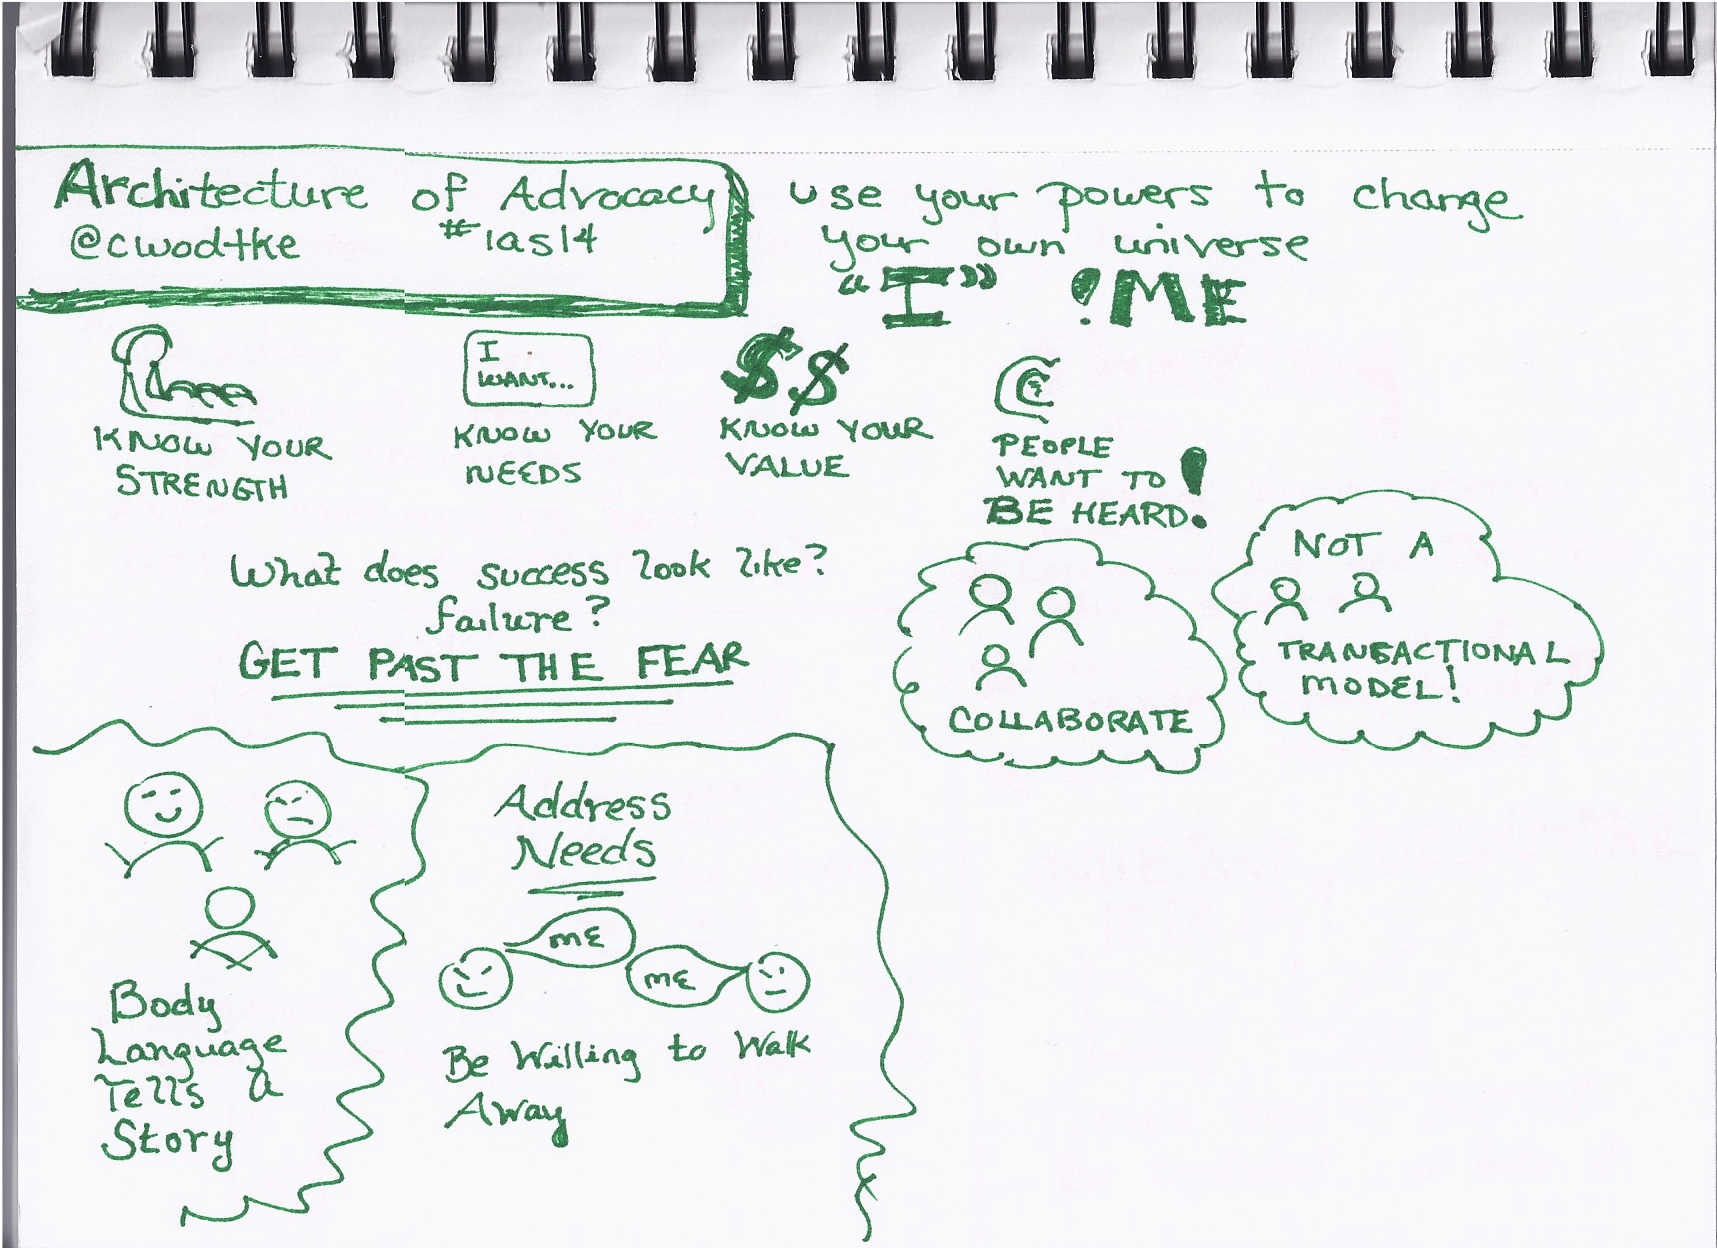 Architecture of Advocacy
@cwodtke #ias14
use your powers to change
your own universe
"I" !ME
I
WANT...
$$
KNOW YOUR
STRENGTH
KNOW YOUR
NEEDS
KNOW YOUR
VALUE
PEOPLE
WANT TO
BE HEARD!
What does success look like?
failure?
GET PAST THE FEAR
COLLABORATE
NOT A
TRANSACTIONAL
MODEL!
Body
Language
Tells a
Story
Address
Needs
ME
ME
Be Willing to Walk
Away